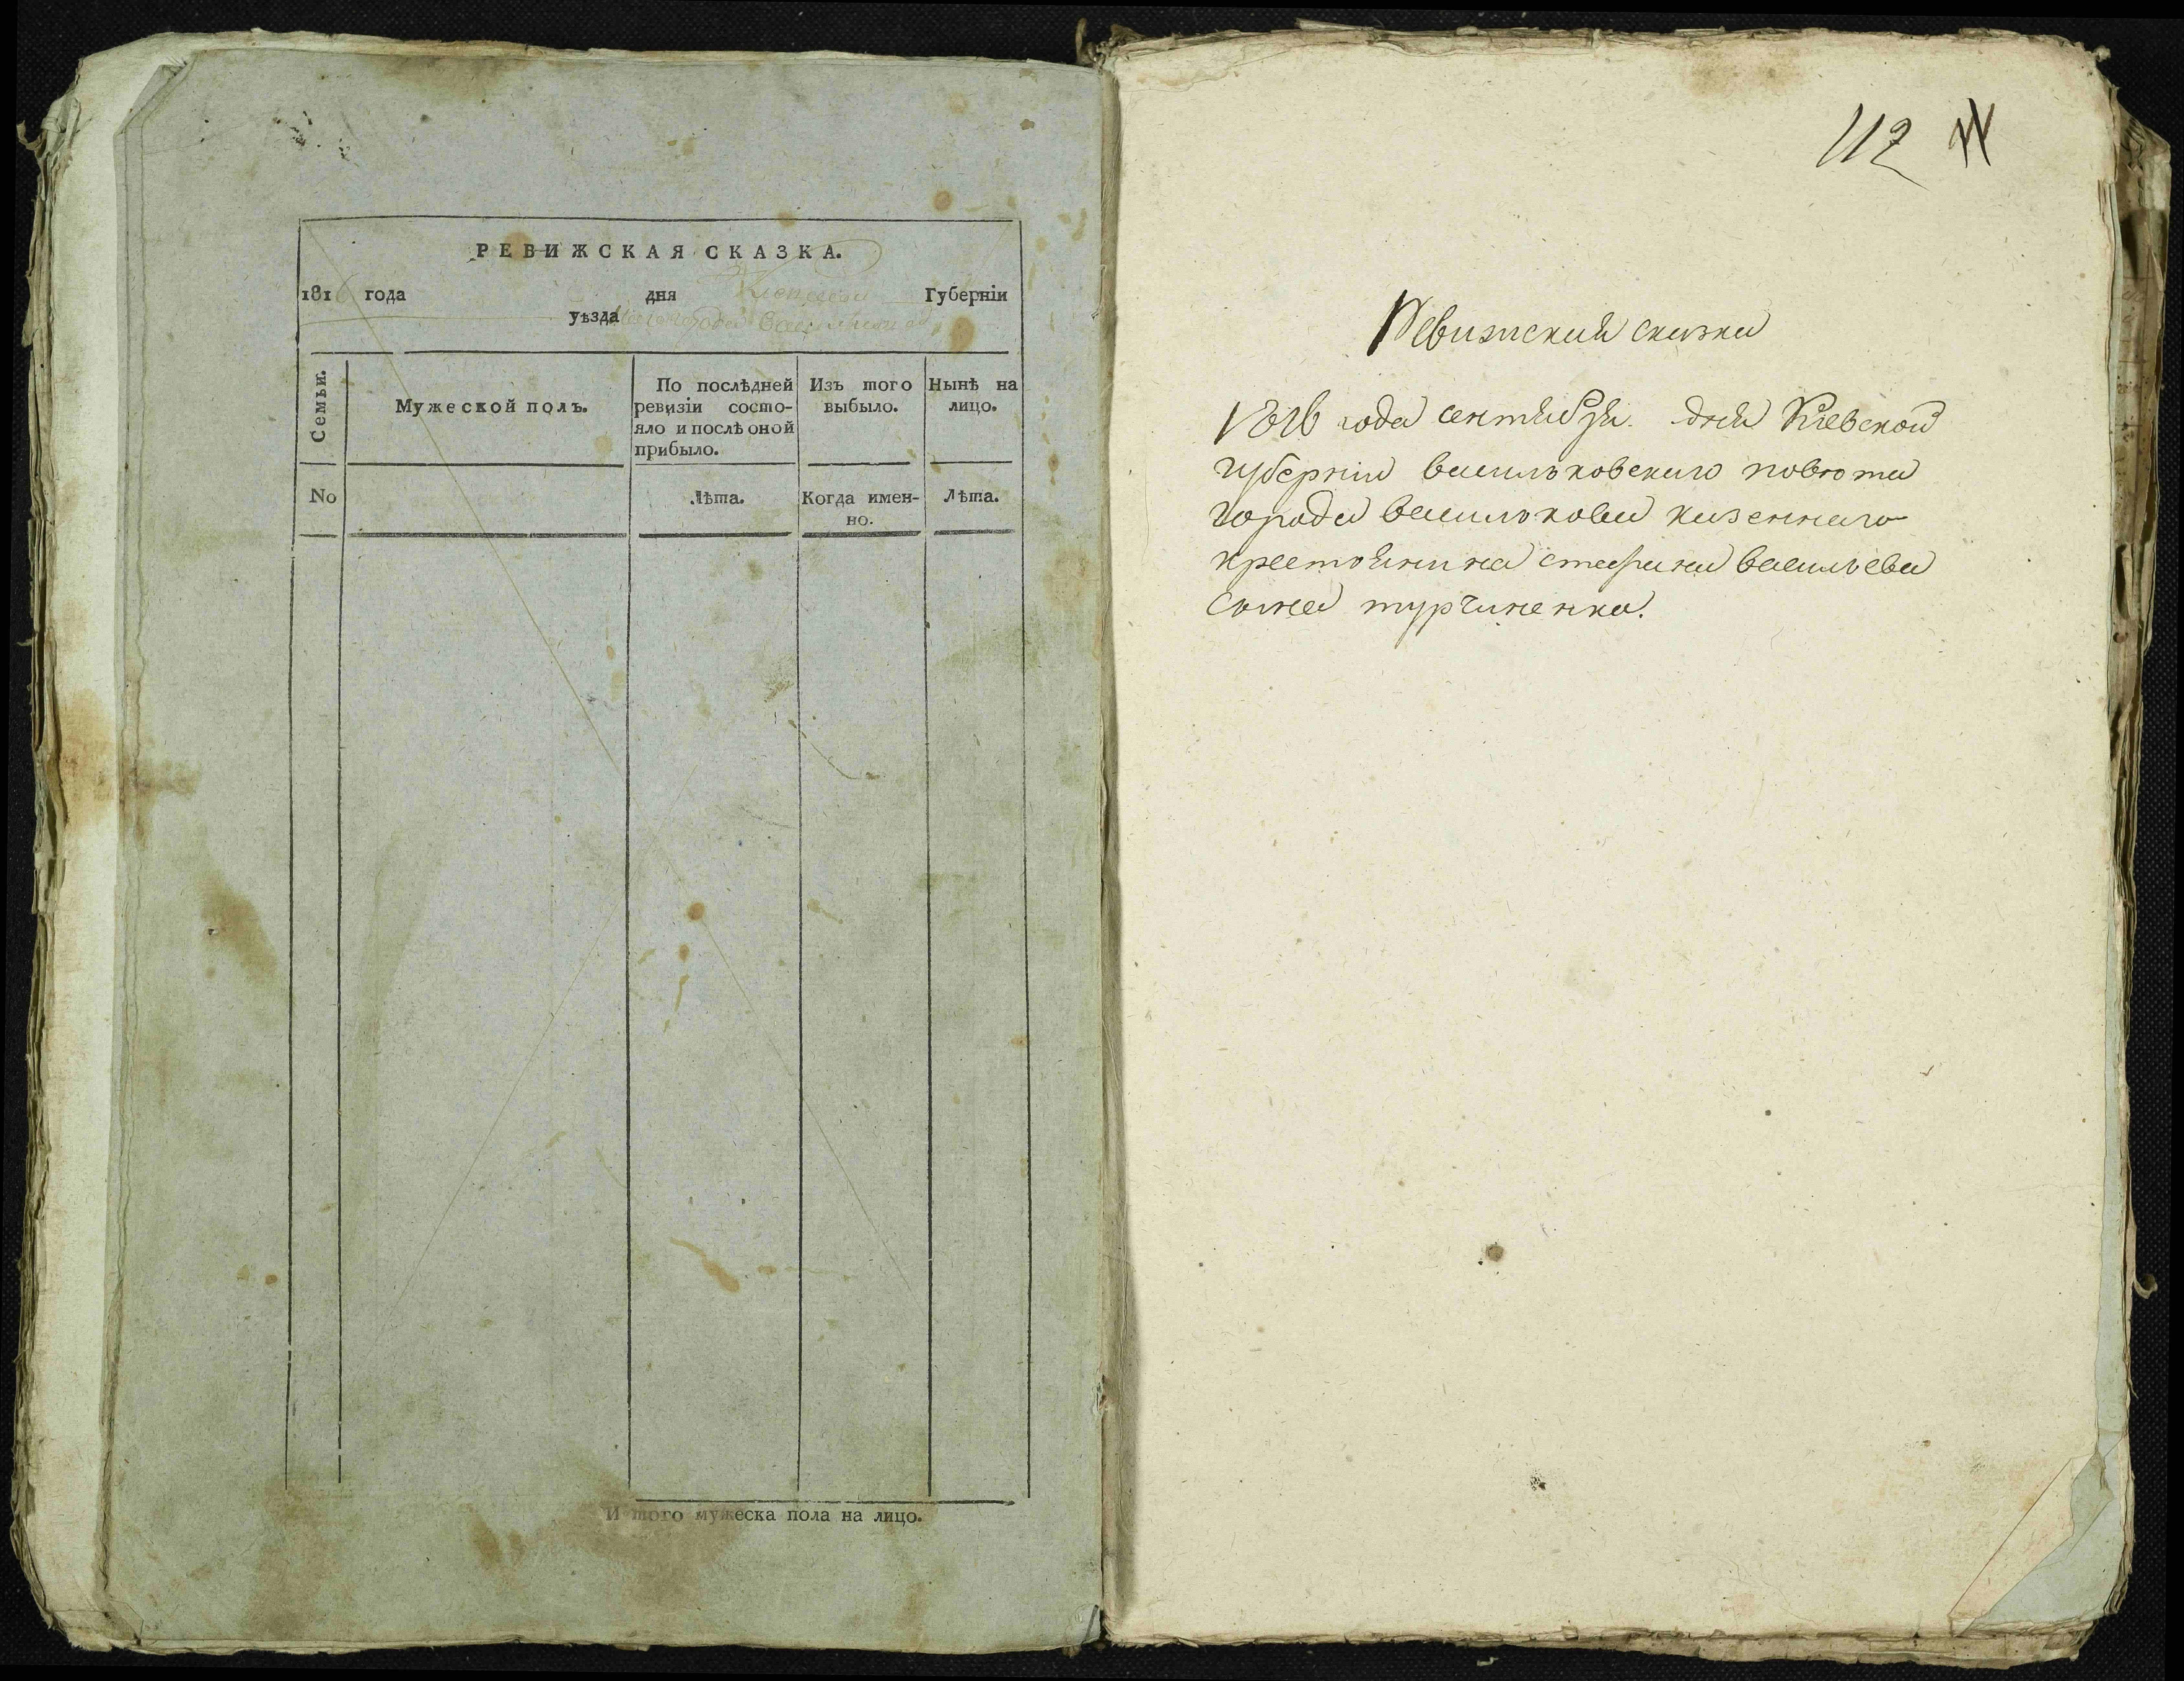 РЕВИЖСКАЯ СКАЗКА.
1816 года дня Киевской Губерніи
уѣзда города Василькова
Семьи.
Мужеской полъ.
По послѣдней
ревизіи состо-
яло и послѣ оной
прибыло.
Изъ того
выбыло.
Нынѣ на
лицо.
No
Лѣта.
Когда имен-
но.
Лѣта.
И того мужеска пола на лицо.
112
Ревижская сказка
1816 года сентября дня Киевской
губернии васильковскаго повета
города василькова казеннаго
крестянина стефана васильева
сына турчиненка.